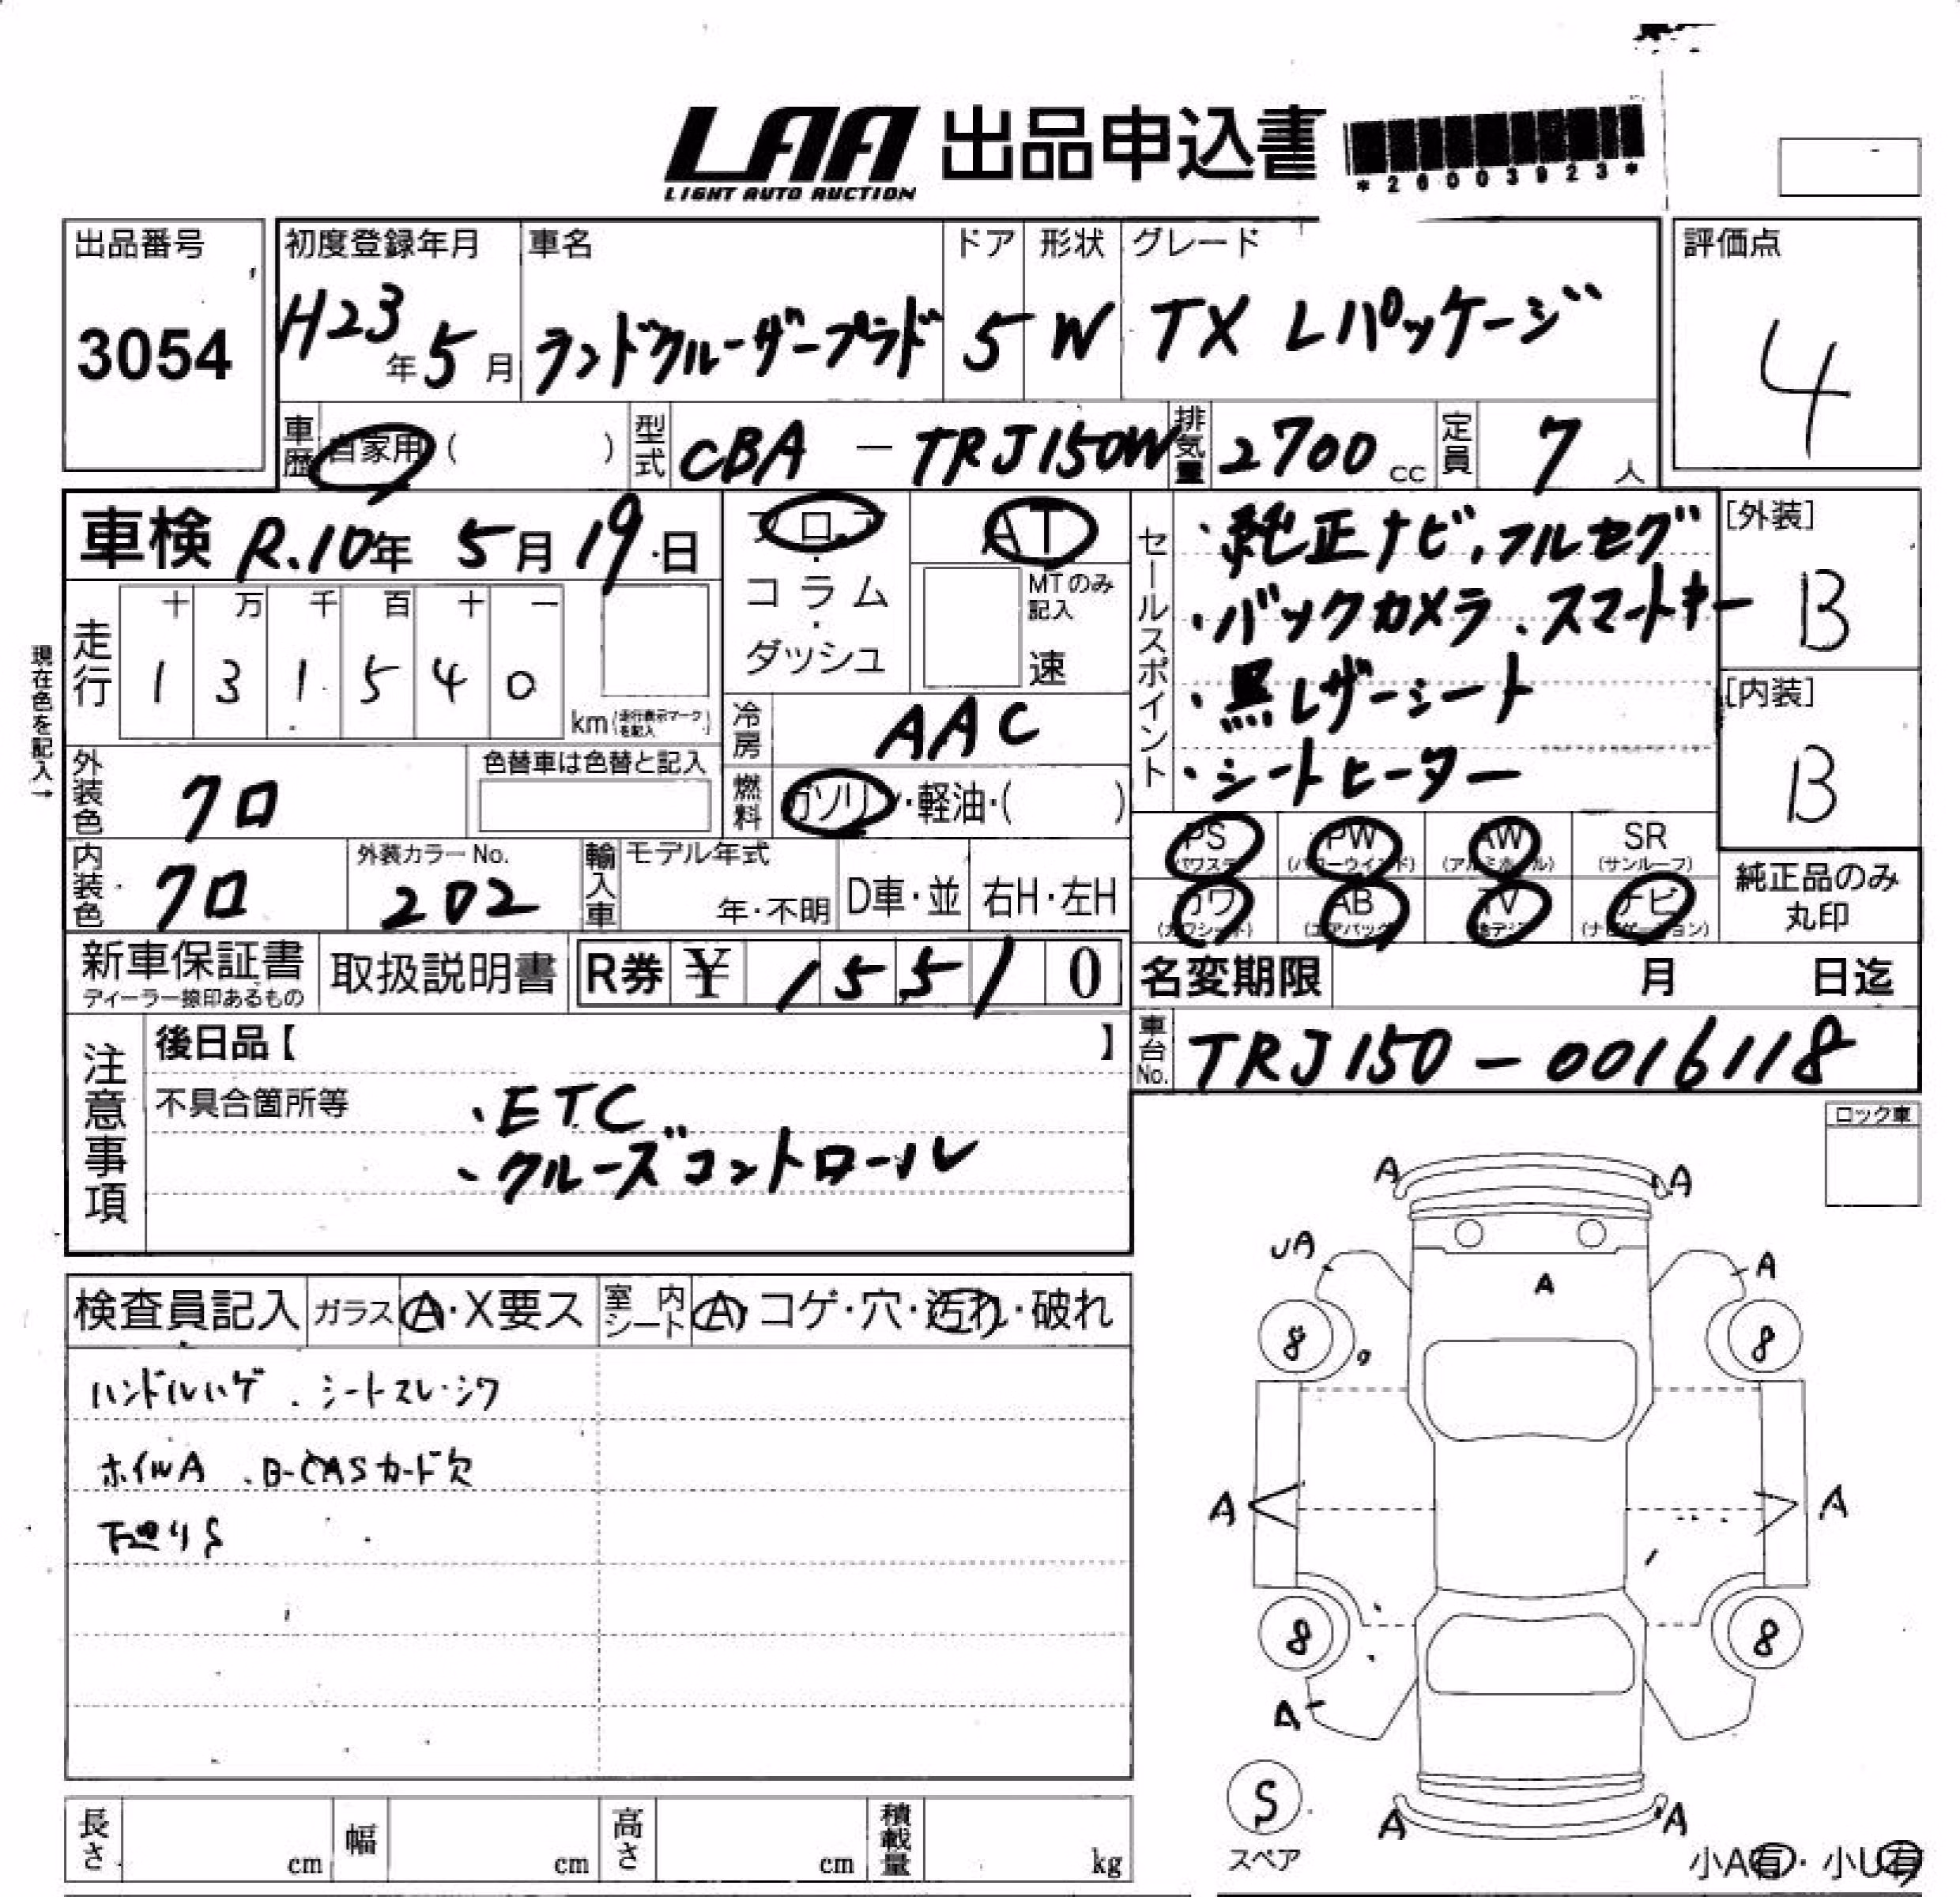 LAA 出品申込書
LIGHT AUTO AUCTION
*26003923*
出品番号
3054
初度登録年月
H23年5月
車名
ランドクルーザープラド
ドア
5
形状
W
グレード
TX Lパッケージ
評価点
4
車歴 自家用( )
型式 CBA - TRJ150W
排気量 2700 cc
定員 7 人
車検 R.10年 5月19日
フロア・コラム・ダッシュ
AT
MTのみ記入
速
セールスポイント
・純正ナビ、フルセグ
・バックカメラ、スマートキー
・黒レザーシート
・シートヒーター
[外装]
B
[内装]
B
現在色を記入→
走行
十 万 千 百 十 一
1 3 1 5 4 0
km(走行表示マークを記入)
冷房 AAC
燃料 ガソリン・軽油・( )
外装色 クロ
色替車は色替と記入
内装色 クロ
外装カラーNo.
202
輸入車 モデル年式
年・不明
D車・並
右H・左H
PS (パワステ) PW (パワーウインド) AW (アルミホイル) SR (サンルーフ)
カワ (カワシート) AB (エアバック) TV (地デジ) ナビ (ナビゲーション)
純正品のみ
丸印
新車保証書
ディーラー捺印あるもの
取扱説明書
R券 ¥ 15510
名変期限 月 日迄
車台No. TRJ150-0016118
注意事項
後日品【 】
不具合箇所等
・ETC
・クルーズコントロール
ロック車
検査員記入 ガラス A・X要ス 室内シート A・コゲ・穴・汚れ・破れ
ハンドルハゲ . シートスレ・シワ
ホイルA . B-CASカード欠
下廻りS
A A
UA A
A
8 8
A A
8 8
A
S
スペア
A A
小A有・小U有
長さ cm 幅 cm 高さ cm 積載量 kg